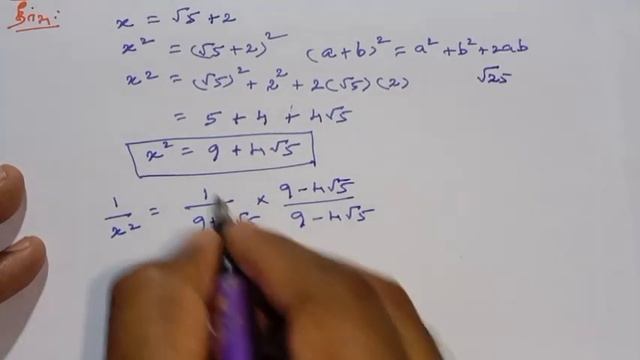 தீர்வு:
x = √5 + 2
x² = (√5 + 2)² (a+b)² = a² + b² + 2ab
x² = (√5)² + 2² + 2(√5)(2) √25
= 5 + 4 + 4√5
x² = 9 + 4√5
1/x² = 1/9+ √5 × 9 - 4√5/9 - 4√5